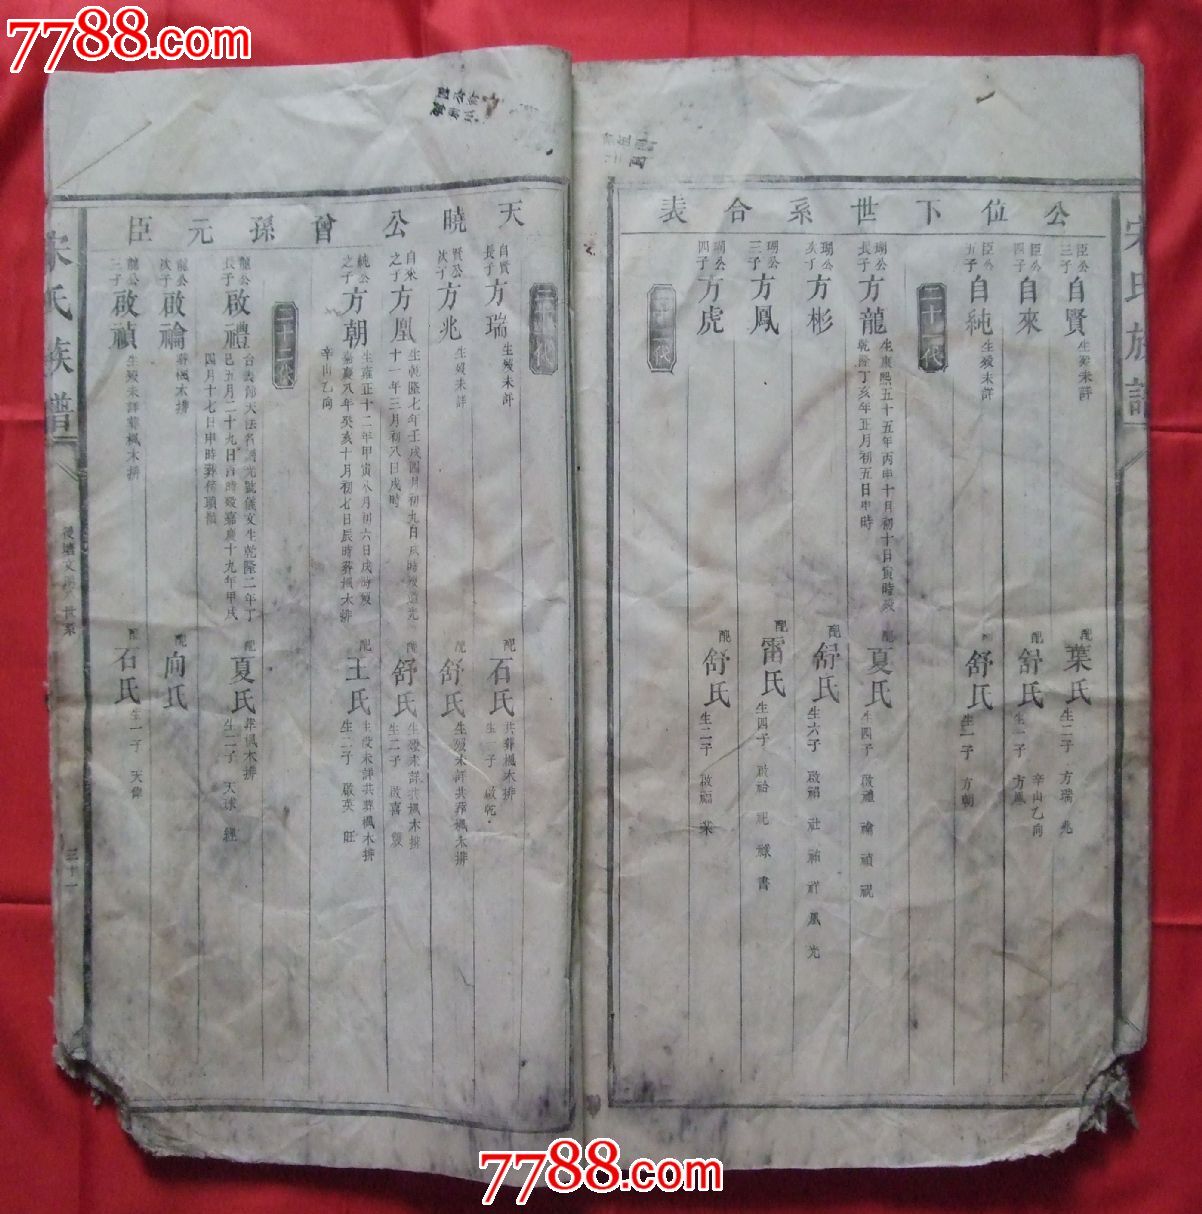 7788.com
7788.com
公位下世系合表
臣公三子自賢生歿未詳
配葉氏生二子方瑞兆
臣公四子自來
配舒氏生一子方鳳辛山乙向
臣公五子自純生歿未詳
配舒氏生一子方朝
二十一代
瑚公長子方龍生康熙五十五年丙申十月初十日寅時歿乾隆丁亥年正月初五日申時
配夏氏生四子啟禮禴禎祝
瑚公次子方彬
配舒氏生六子啟福社祥鳳光
瑚公三子方鳳
配雷氏生四子啟祿書
瑚公四子方虎
配舒氏生二子啟福
天曉公曾孫元臣
自賢長子方瑞生歿未詳
配石氏共葬楓木排生一子啟乾
賢公次子方兆生歿未詳
配舒氏生歿未詳共葬楓木排
自來之子方凰生乾隆七年壬戌四月初九日戌時歿道光十一年三月初八日戌時
配舒氏生歿未詳共葬楓木排生二子啟喜
純公之子方朝生雍正十二年甲寅八月初六日戌時歿嘉慶八年癸亥十月初七日辰時葬楓木排辛山乙向
配王氏生歿未詳共葬楓木排生二子啟英旺
二十二代
龍公長子啟禮
生乾隆二年丁巳五月二十九日酉時歿嘉慶十九年甲戌四月十七日申時葬
配夏氏葬楓木排生二子天球
龍公次子啟禴葬楓木排
配向氏
龍公三子啟禎生歿未詳葬楓木排
配石氏生一子天偉
宋氏族譜
三十一
宋氏族譜